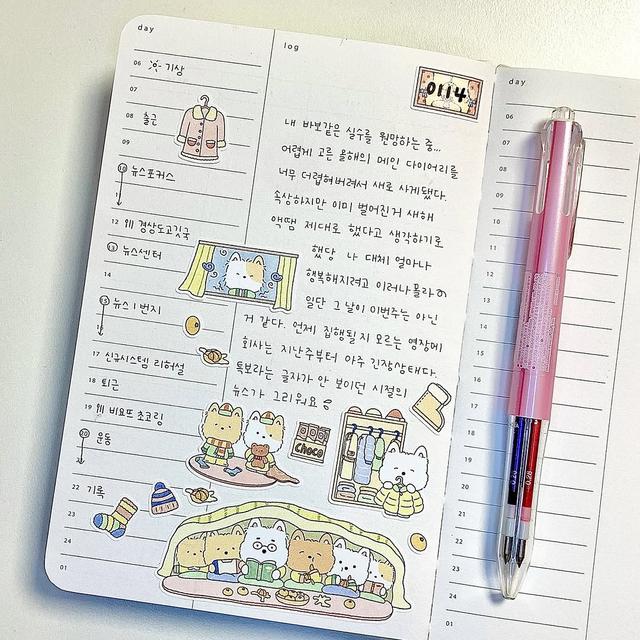 day
log
0114
06 기상
07
08 출근
09
10 뉴스포커스
11
12 경상도고깃국
13 뉴스센터
14
15 뉴스1번지
17 신규시스템 리허설
18 퇴근
19 비요뜨 초코링
20 운동
21
22 기록
24
01
내 바보같은 실수를 원망하는 중...
어렵게 고른 올해의 메인 다이어리를
너무 더럽혀버려서 새로 사게됐다.
속상하지만 이미 벌어진거 새해
액땜 제대로 했다고 생각하기로
했당 나 대체 얼마나
행복해지려고 이러나 몰라
일단 그 날이 이번주는 아닌
거 같다. 언제 집행될지 모르는 영장에
회사는 지난주부터 아주 긴장상태다.
특보라는 글자가 안 보이던 시절의
뉴스가 그리워요
Choco
day
06
07
08
09
10
11
12
13
14
15
16
17
18
19
20
21
22
23
24
01